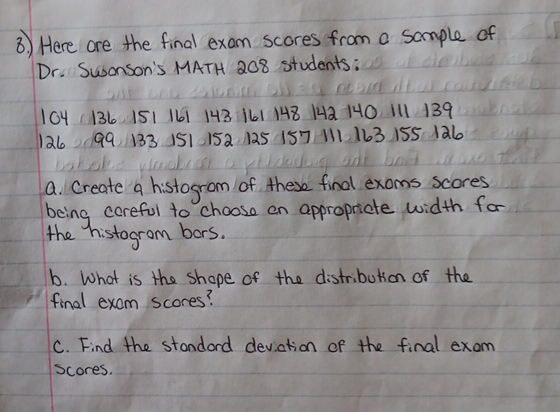 8) Here are the final exam scores from a sample of
Dr. Swanson's MATH 208 students:
104 136 151 161 143 161 148 142 140 111 139
126 99 133 151 152 125 157 111 163 155 126
a. Create a histogram of these final exams scores
being careful to choose an appropriate width for
the histogram bars.
b. What is the shape of the distribution of the
final exam scores?
c. Find the standard deviation of the final exam
scores.